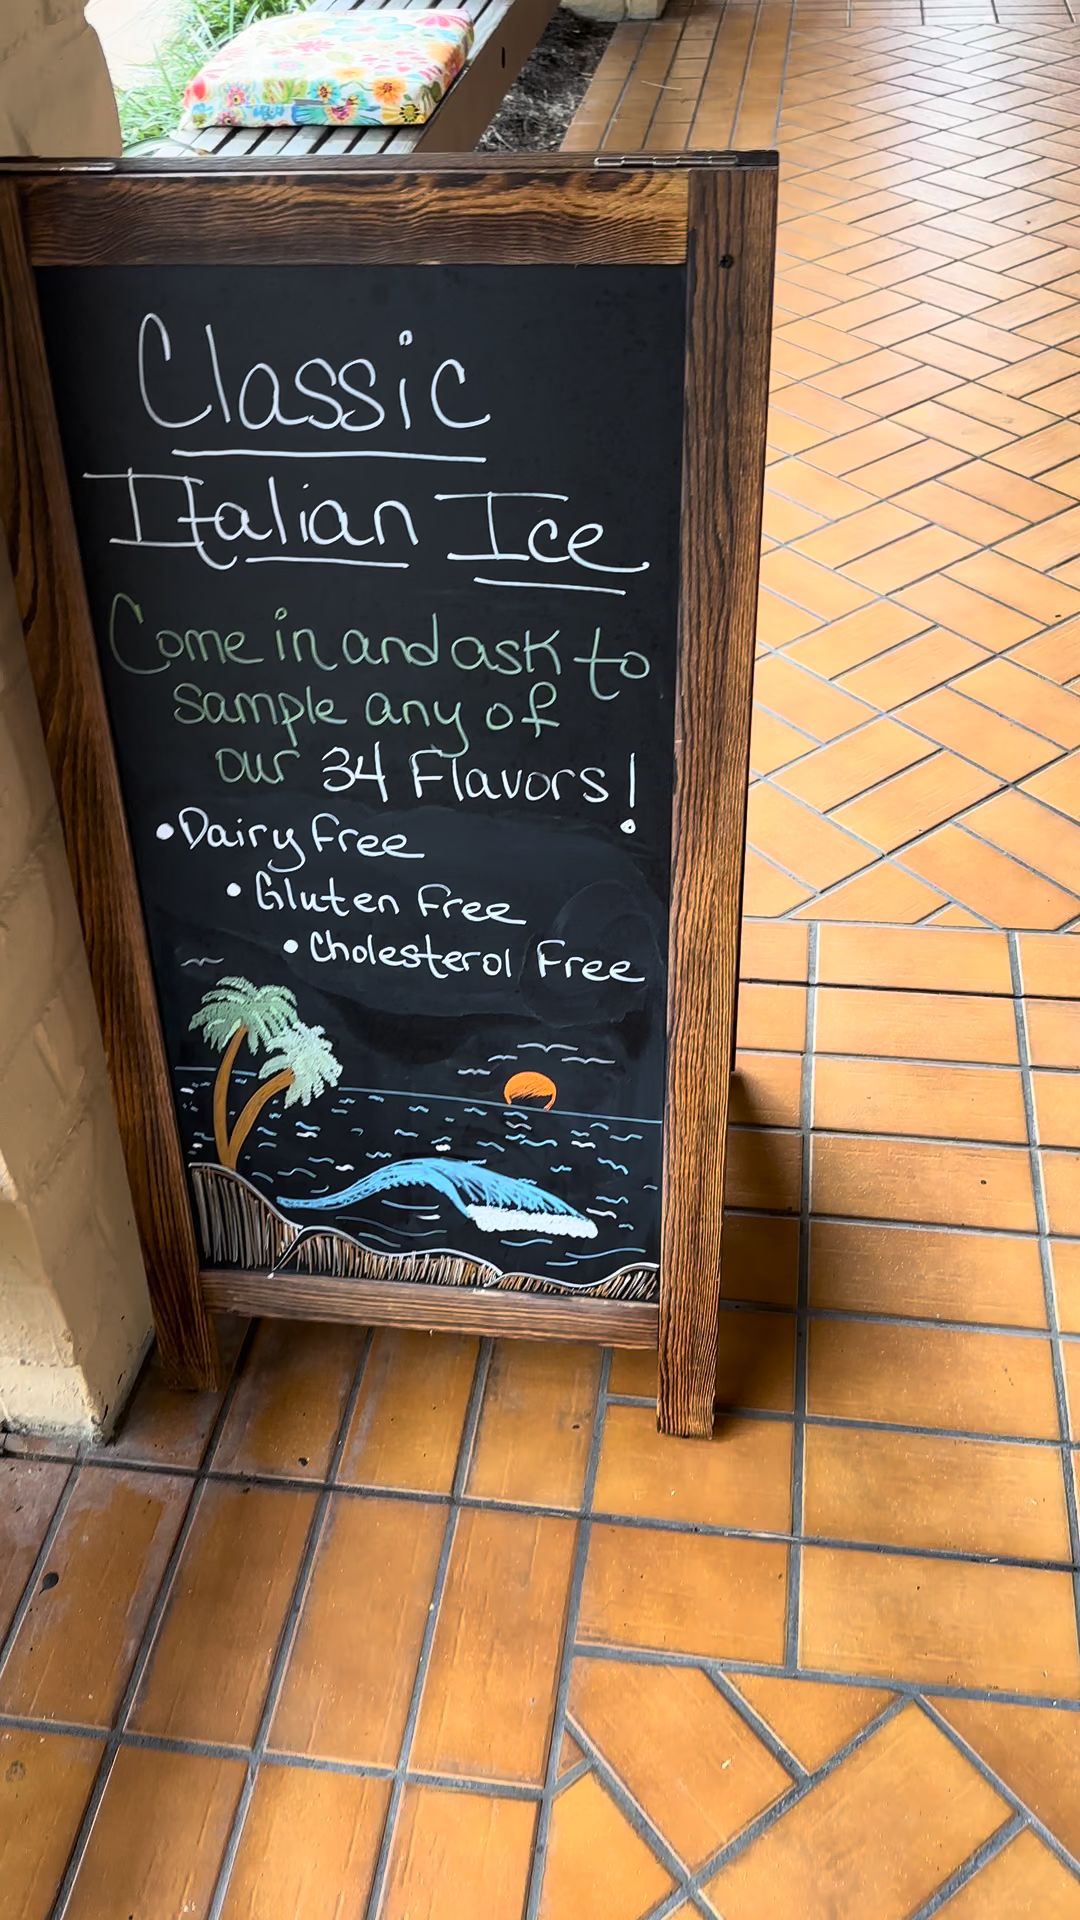 Classic
Italian Ice
Come in and ask to
sample any of
our 34 Flavors!
• Dairy Free
• Gluten Free
• Cholesterol Free